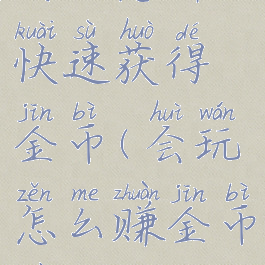 kuài sù huò dé
快速获得
jīn bì huì wán
金币(会玩
zěn me zhuàn jīn bì
怎么赚金币